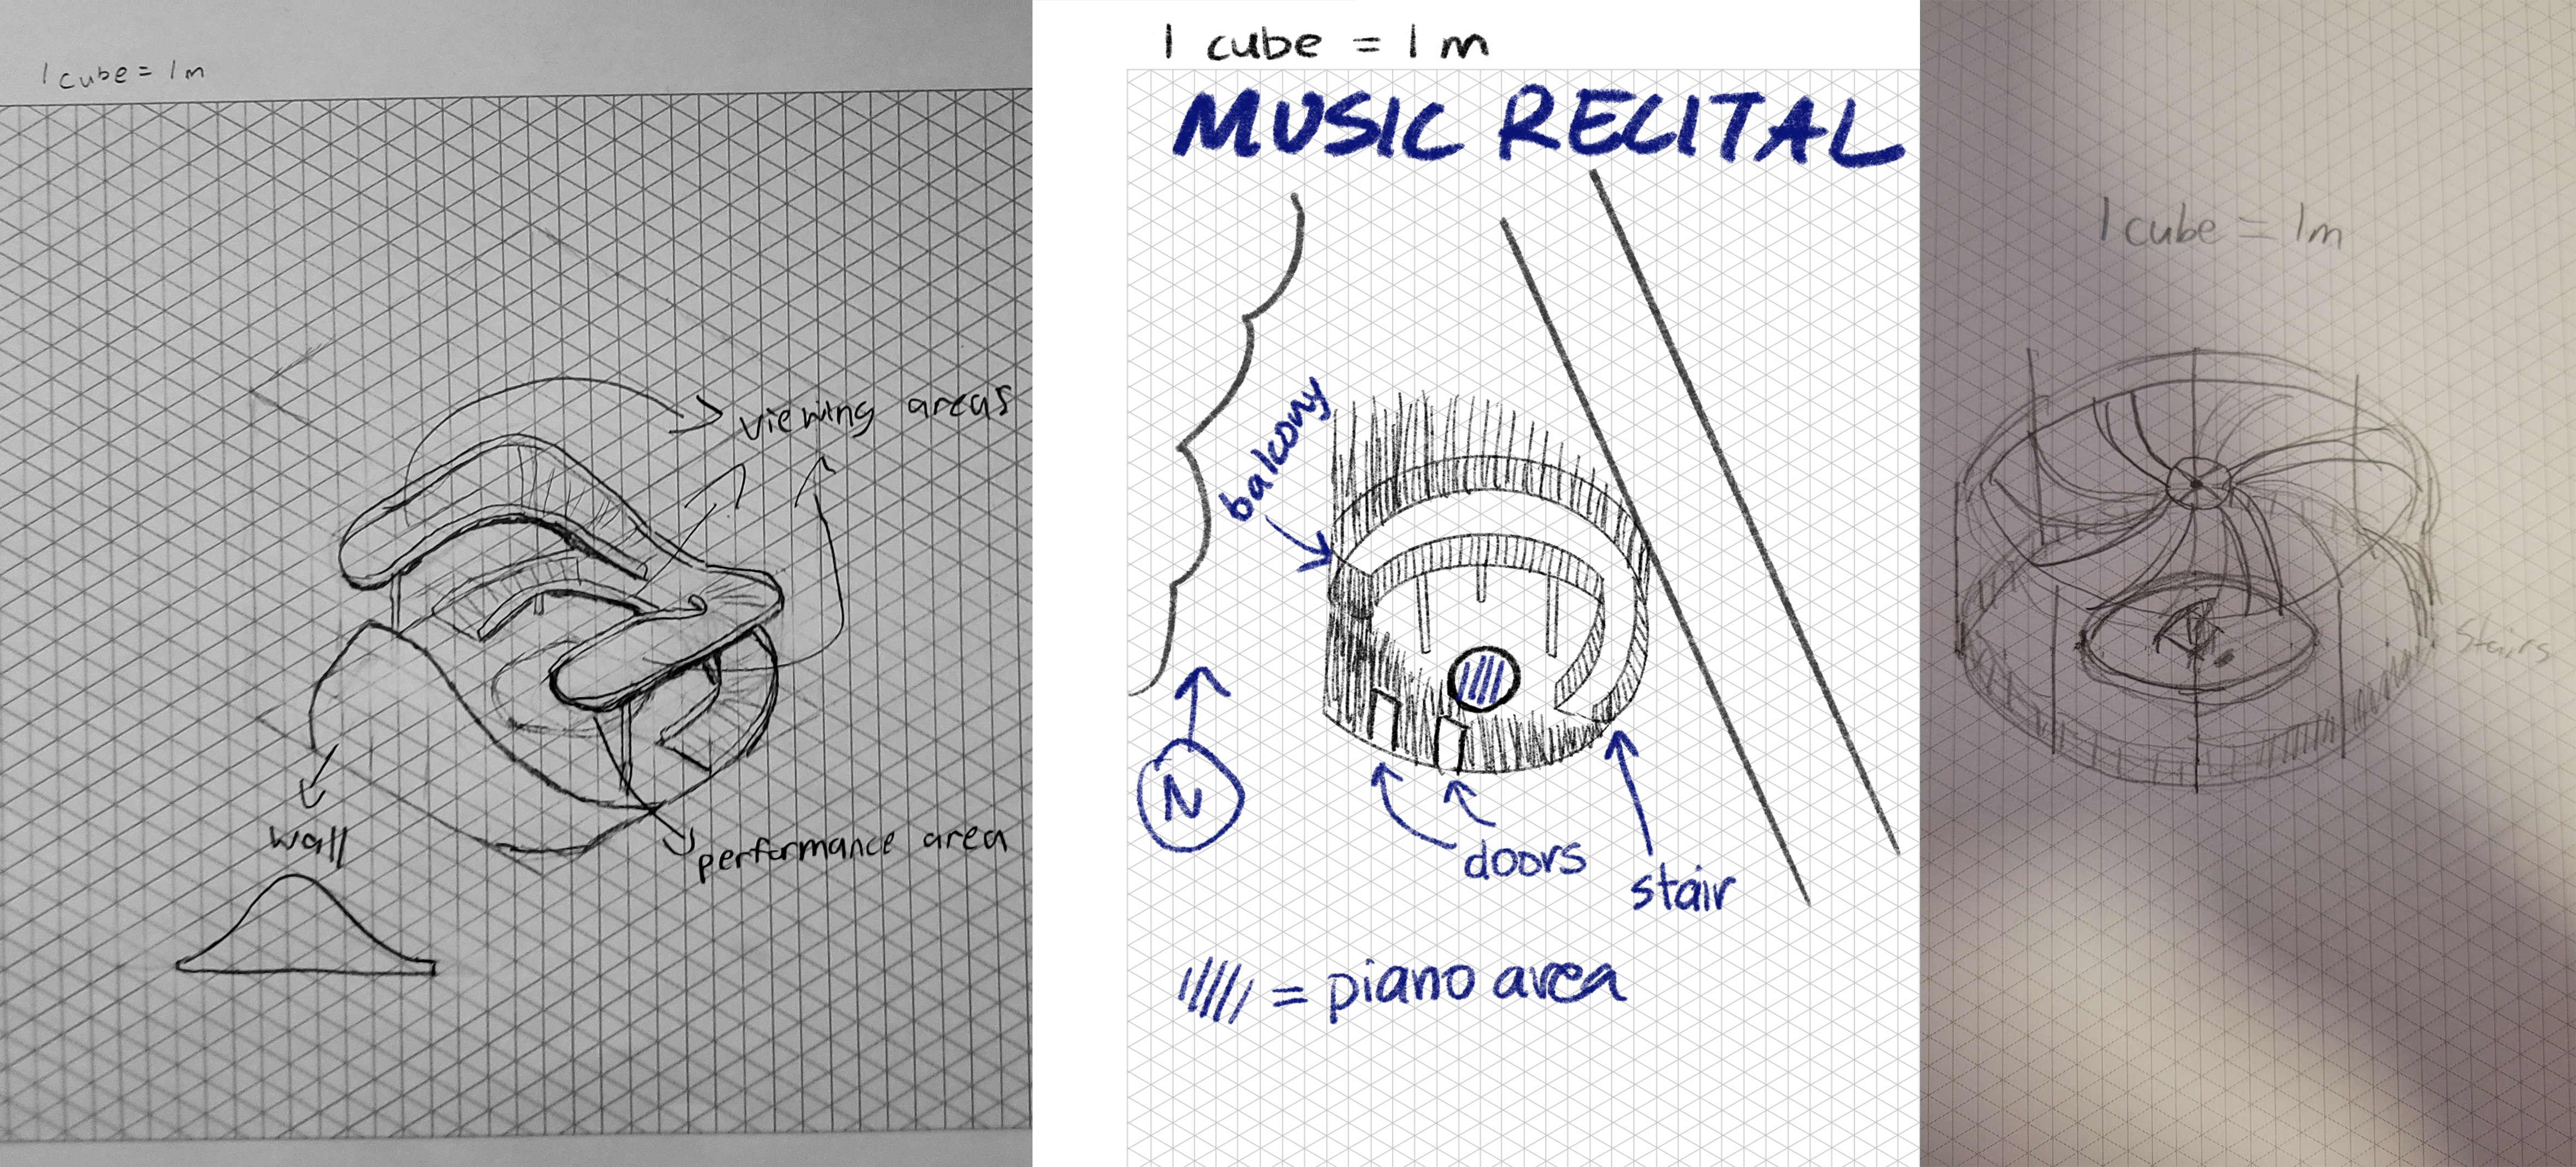 1 cube = 1m
viewing areas
wall
performance area
1 cube = 1m
MUSIC RECITAL
balcony
N
doors
stair
= piano area
1 cube = 1m
Stairs